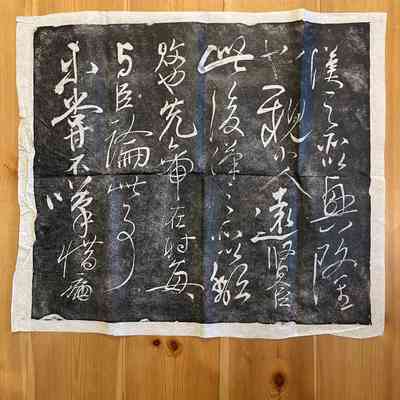 漢之所以興隆
也親小人遠賢臣
此後漢之所以傾
頹也先帝在時每
與臣論此事
未嘗不嘆惜痛